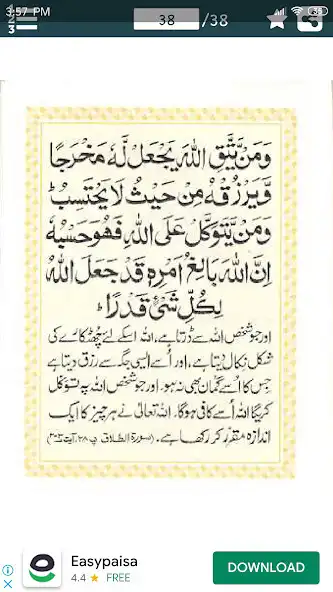 3:57 PM
38 /38
1
2
3
وَمَنْ يَّتَّقِ اللهَ يَجْعَلْ لَّهٗ مَخْرَجًا
وَّيَرْزُقْهُ مِنْ حَيْثُ لَا يَحْتَسِبُ ؕ
وَمَنْ يَّتَوَكَّلْ عَلَى اللهِ فَهُوَ حَسْبُهٗ
اِنَّ اللهَ بَالِغُ اَمْرِهٖ قَدْ جَعَلَ اللهُ
لِكُلِّ شَیْءٍ قَدْرًا ؕ
اور جو شخص اللہ سے ڈرتا ہے، اللہ اسکے لئے چھٹکارے کی
شکل نکال دیتا ہے، اور اُسے ایسی جگہ سے رزق دیتا ہے
جس کا اُسے گمان بھی نہ ہو۔ اور جو شخص اللہ پہ توکل
کریگا اللہ اُسے کافی ہوگا۔ اللہ تعالیٰ نے ہر چیز کا ایک
اندازہ مقرّر کر رکھا ہے۔ (سورۃ الطلاق پ ۲۸، آیت ۲-۳)
Easypaisa
4.4 ★ FREE
DOWNLOAD